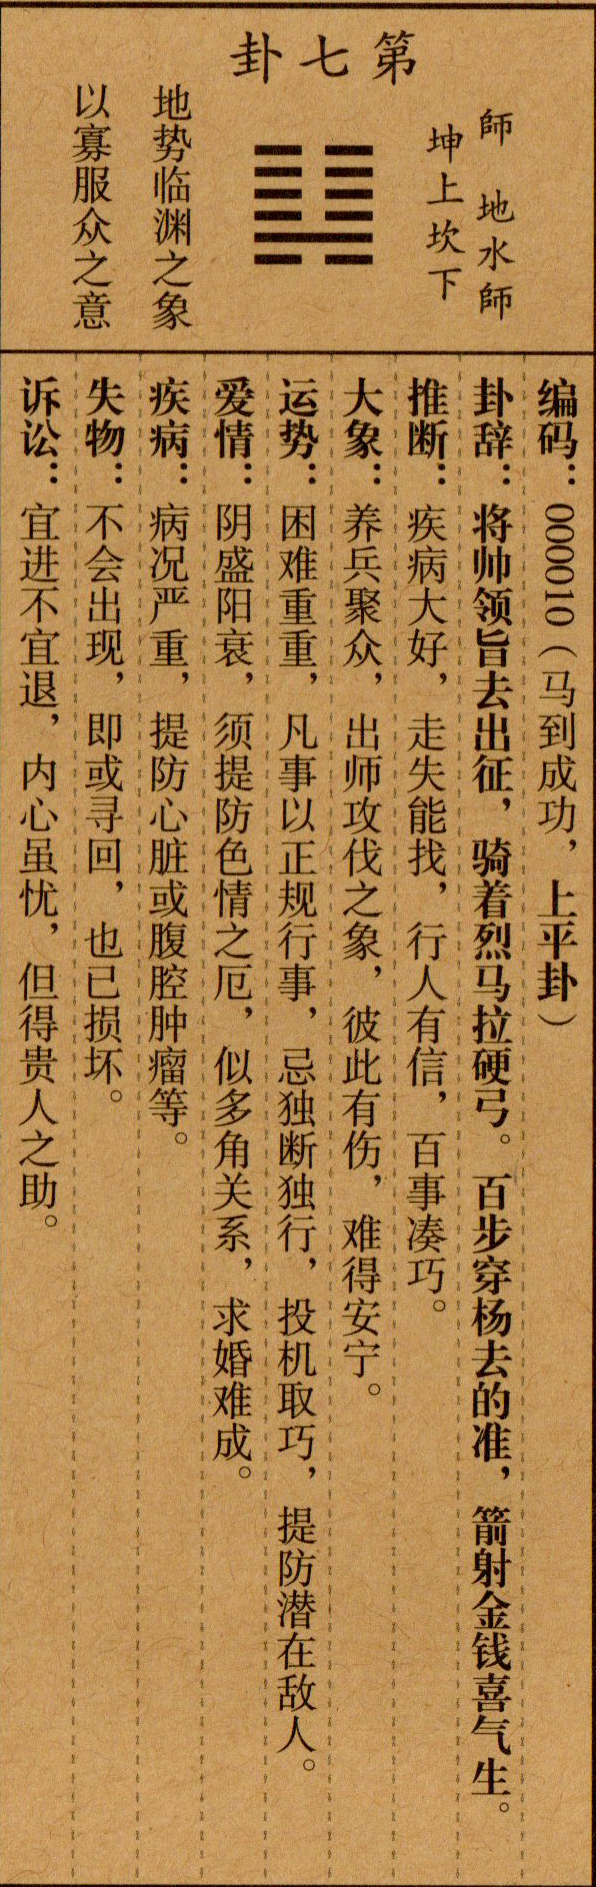 第七卦
師 地水師
坤上坎下
地势临渊之象
以寡服众之意
编码：000010（马到成功，上平卦）
卦辞：将帅领旨去出征，骑着烈马拉硬弓。百步穿杨去的准，箭射金钱喜气生。
推断：疾病大好，走失能找，行人有信，百事凑巧。
大象：养兵聚众，出师攻伐之象，彼此有伤，难得安宁。
运势：困难重重，凡事以正规行事，忌独断独行，投机取巧，提防潜在敌人。
爱情：阴盛阳衰，须提防色情之厄，似多角关系，求婚难成。
疾病：病况严重，提防心脏或腹腔肿瘤等。
失物：不会出现，即或寻回，也已损坏。
诉讼：宜进不宜退，内心虽忧，但得贵人之助。